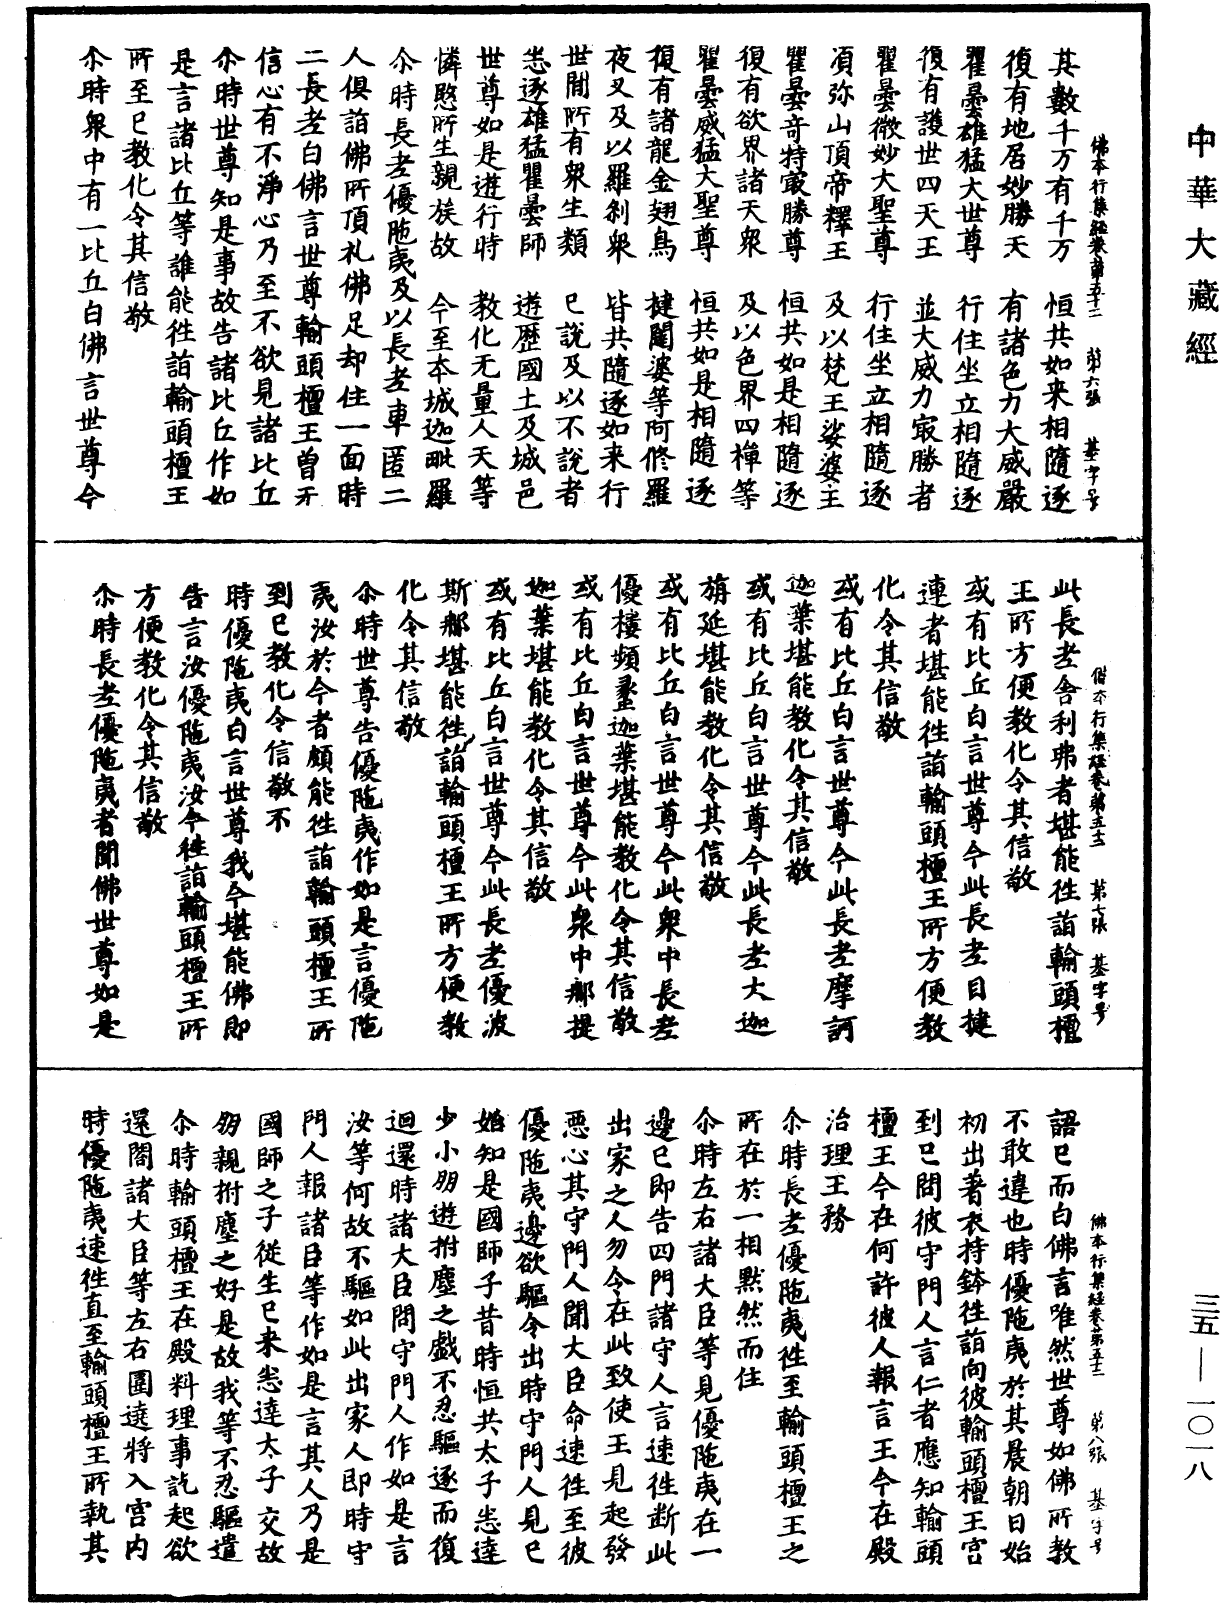 中華大藏經
其數千万有千万　恒共如来相隨逐
佛本行集經卷第五十二　第六張　基字号
復有地居妙勝天　有諸色力大威嚴
瞿曇雄猛大世尊　行住坐立相隨逐
復有護世四天王　並大威力㝡勝者
瞿曇微妙大聖尊　行住坐立相隨逐
湏弥山頂帝釋王　及以梵王娑婆主
瞿曇奇特㝡勝尊　恒共如是相隨逐
復有欲界諸天衆　及以色界四禅等
瞿曇威猛大聖尊　恒共如是相隨逐
復有諸龍金翅鳥　揵闥婆等阿修羅
夜叉及以羅刹衆　皆共隨逐如来行
世間所有衆生類　已說及以不說者
悉逐雄猛瞿曇師　遊歷國土及城邑
世尊如是遊行時　教化无量人天等
憐愍所生親族故　今至本城迦毗羅
尒時長老優陁夷及以長老車匿二
人俱詣佛所頂礼佛足却住一面時
二長老白佛言世尊輸頭檀王曽无
信心有不淨心乃至不欲見諸比丘
尒時世尊知是事故告諸比丘作如
是言諸比丘等誰能往詣輸頭檀王
所至已教化令其信敬
尒時衆中有一比丘白佛言世尊今
此長老舍利弗者堪能往詣輸頭檀
佛本行集經卷第五十二　第七張　基字号
王所方便教化令其信敬
或有比丘白言世尊今此長老目揵
連者堪能往詣輸頭檀王所方便教
化令其信敬
或有比丘白言世尊今此長老摩訶
迦葉堪能教化令其信敬
或有比丘白言世尊今此長老大迦
旃延堪能教化令其信敬
或有比丘白言世尊今此衆中長老
優樓頻蠡迦葉堪能教化令其信敬
或有比丘白言世尊今此衆中那提
迦葉堪能教化令其信敬
或有比丘白言世尊今此長老優波
斯那堪能往詣輸頭檀王所方便教
化令其信敬
尒時世尊告優陁夷作如是言優陁
夷汝於今者頗能往詣輸頭檀王所
到已教化令信敬不
時優陁夷白言世尊我今堪能佛即
告言汝優陁夷汝今往詣輸頭檀王所
方便教化令其信敬
尒時長老優陁夷者聞佛世尊如是
語已而白佛言唯然世尊如佛所教
佛本行集經卷第五十二　第八張　基字号
不敢違也時優陁夷於其晨朝日始
初出著衣持鉢往詣向彼輸頭檀王宮
到已問彼守門人言仁者應知輸頭
檀王今在何許彼人報言王今在殿
治理王務
尒時長老優陁夷往至輸頭檀王之
所在於一相默然而住
尒時左右諸大臣等見優陁夷在一
邊已即告四門諸守人言速往斷此
出家之人勿令在此致使王見起發
惡心其守門人聞大臣命速往至彼
優陁夷邊欲驅令出時守門人見已
始知是國師子昔時恒共太子悉達
少小朋遊拊塵之戲不忍驅逐而復
迴還時諸大臣問守門人作如是言
汝等何故不驅如此出家人即時守
門人報諸臣等作如是言其人乃是
國師之子從生已来悉達太子交故
朋親拊塵之好是故我等不忍驅遣
尒時輸頭檀王在殿料理事訖起欲
還閤諸大臣等左右圍遶將入宮内
時優陁夷速往直至輸頭檀王所執其
三五—一〇一八